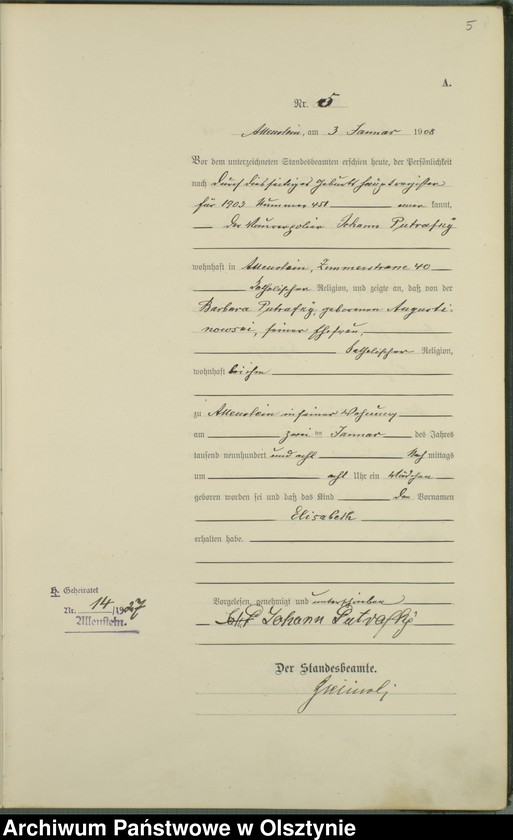 5
A.
Nr. 5
Allenstein, am 3 Januar 1908
Vor dem unterzeichneten Standesbeamten erschien heute, der Persönlichkeit
nach durch diesseitiges Geburtshauptregister
für 1903 Nummer 451 kannt,
der Maurerpolier Johann Putrafky
wohnhaft in Allenstein, Zimmerstrasse 40
katholischer Religion, und zeigte an, daß von der
Barbara Putrafky, geborenen Augusti-
nowski, seiner Ehefrau,
katholischer Religion,
wohnhaft bei ihm
zu Allenstein in seiner Wohnung
am zwei ten Januar des Jahres
tausend neunhundert und acht Nach mittags
um acht Uhr ein Mädchen
geboren worden sei und daß das Kind den Vornamen
Elisabeth
erhalten habe.
Vorgelesen, genehmigt und unterschrieben
Johann Putrafky
Der Standesbeamte.
H. Geheiratet
Nr. 14/1927
Allenstein.
Archiwum Państwowe w Olsztynie